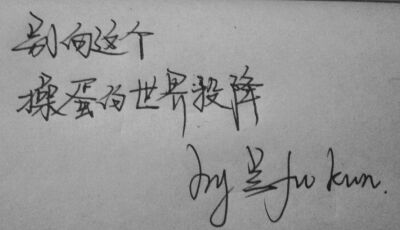 别向这个
操蛋的世界投降
by 是fu kun.